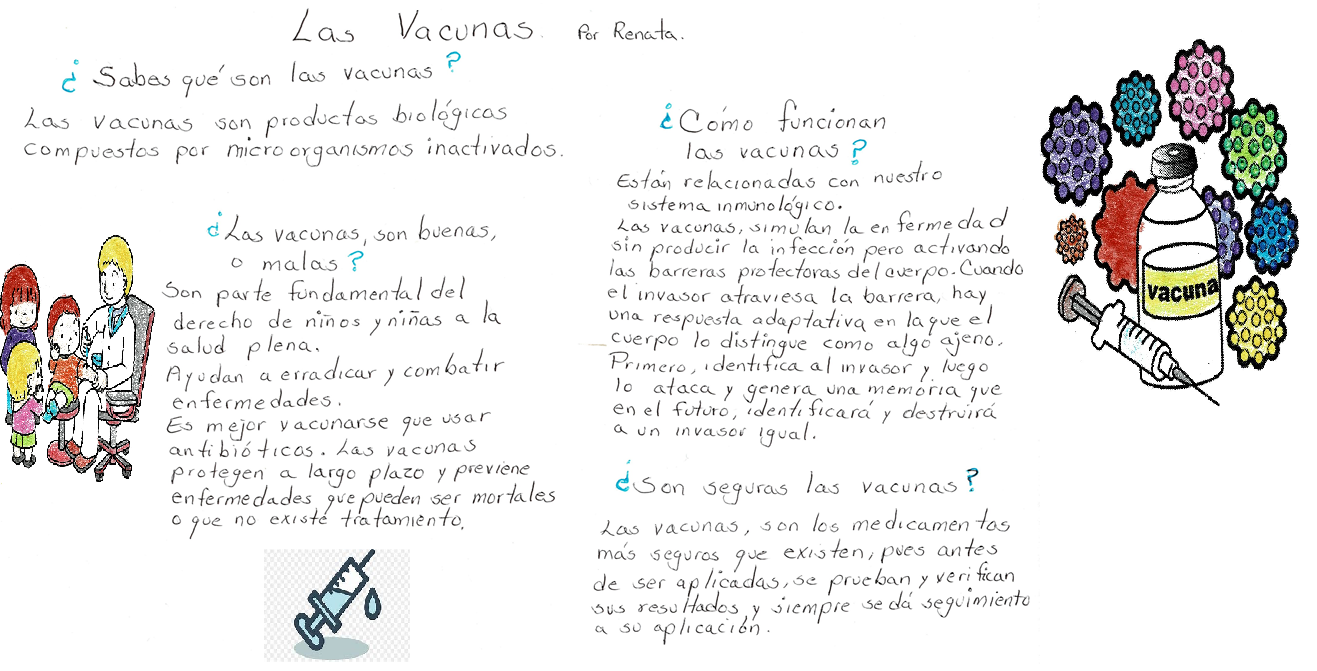 Las Vacunas. Por Renata.
¿Sabes qué son las vacunas?
Las vacunas son productos biológicos
compuestos por microorganismos inactivados.
¿Las vacunas, son buenas,
o malas?
Son parte fundamental del
derecho de niños y niñas a la
salud plena.
Ayudan a erradicar y combatir
enfermedades.
Es mejor vacunarse que usar
antibióticos. Las vacunas
protegen a largo plazo y previene
enfermedades que pueden ser mortales
o que no existé tratamiento.
¿Cómo funcionan
las vacunas?
Están relacionadas con nuestro
sistema inmunológico.
Las vacunas, simulan la enfermedad
sin producir la infección pero activando
las barreras protectoras del cuerpo. Cuando
el invasor atraviesa la barrera, hay
una respuesta adaptativa en la que el
cuerpo lo distingue como algo ajeno.
Primero, identifica al invasor y luego
lo ataca y genera una memoria que
en el futuro, identificará y destruirá
a un invasor igual.
¿Son seguras las vacunas?
Las vacunas, son los medicamentos
más seguros que existen, pues antes
de ser aplicadas, se prueban y verifican
sus resultados y siempre se dá seguimiento
a su aplicación.
vacuna